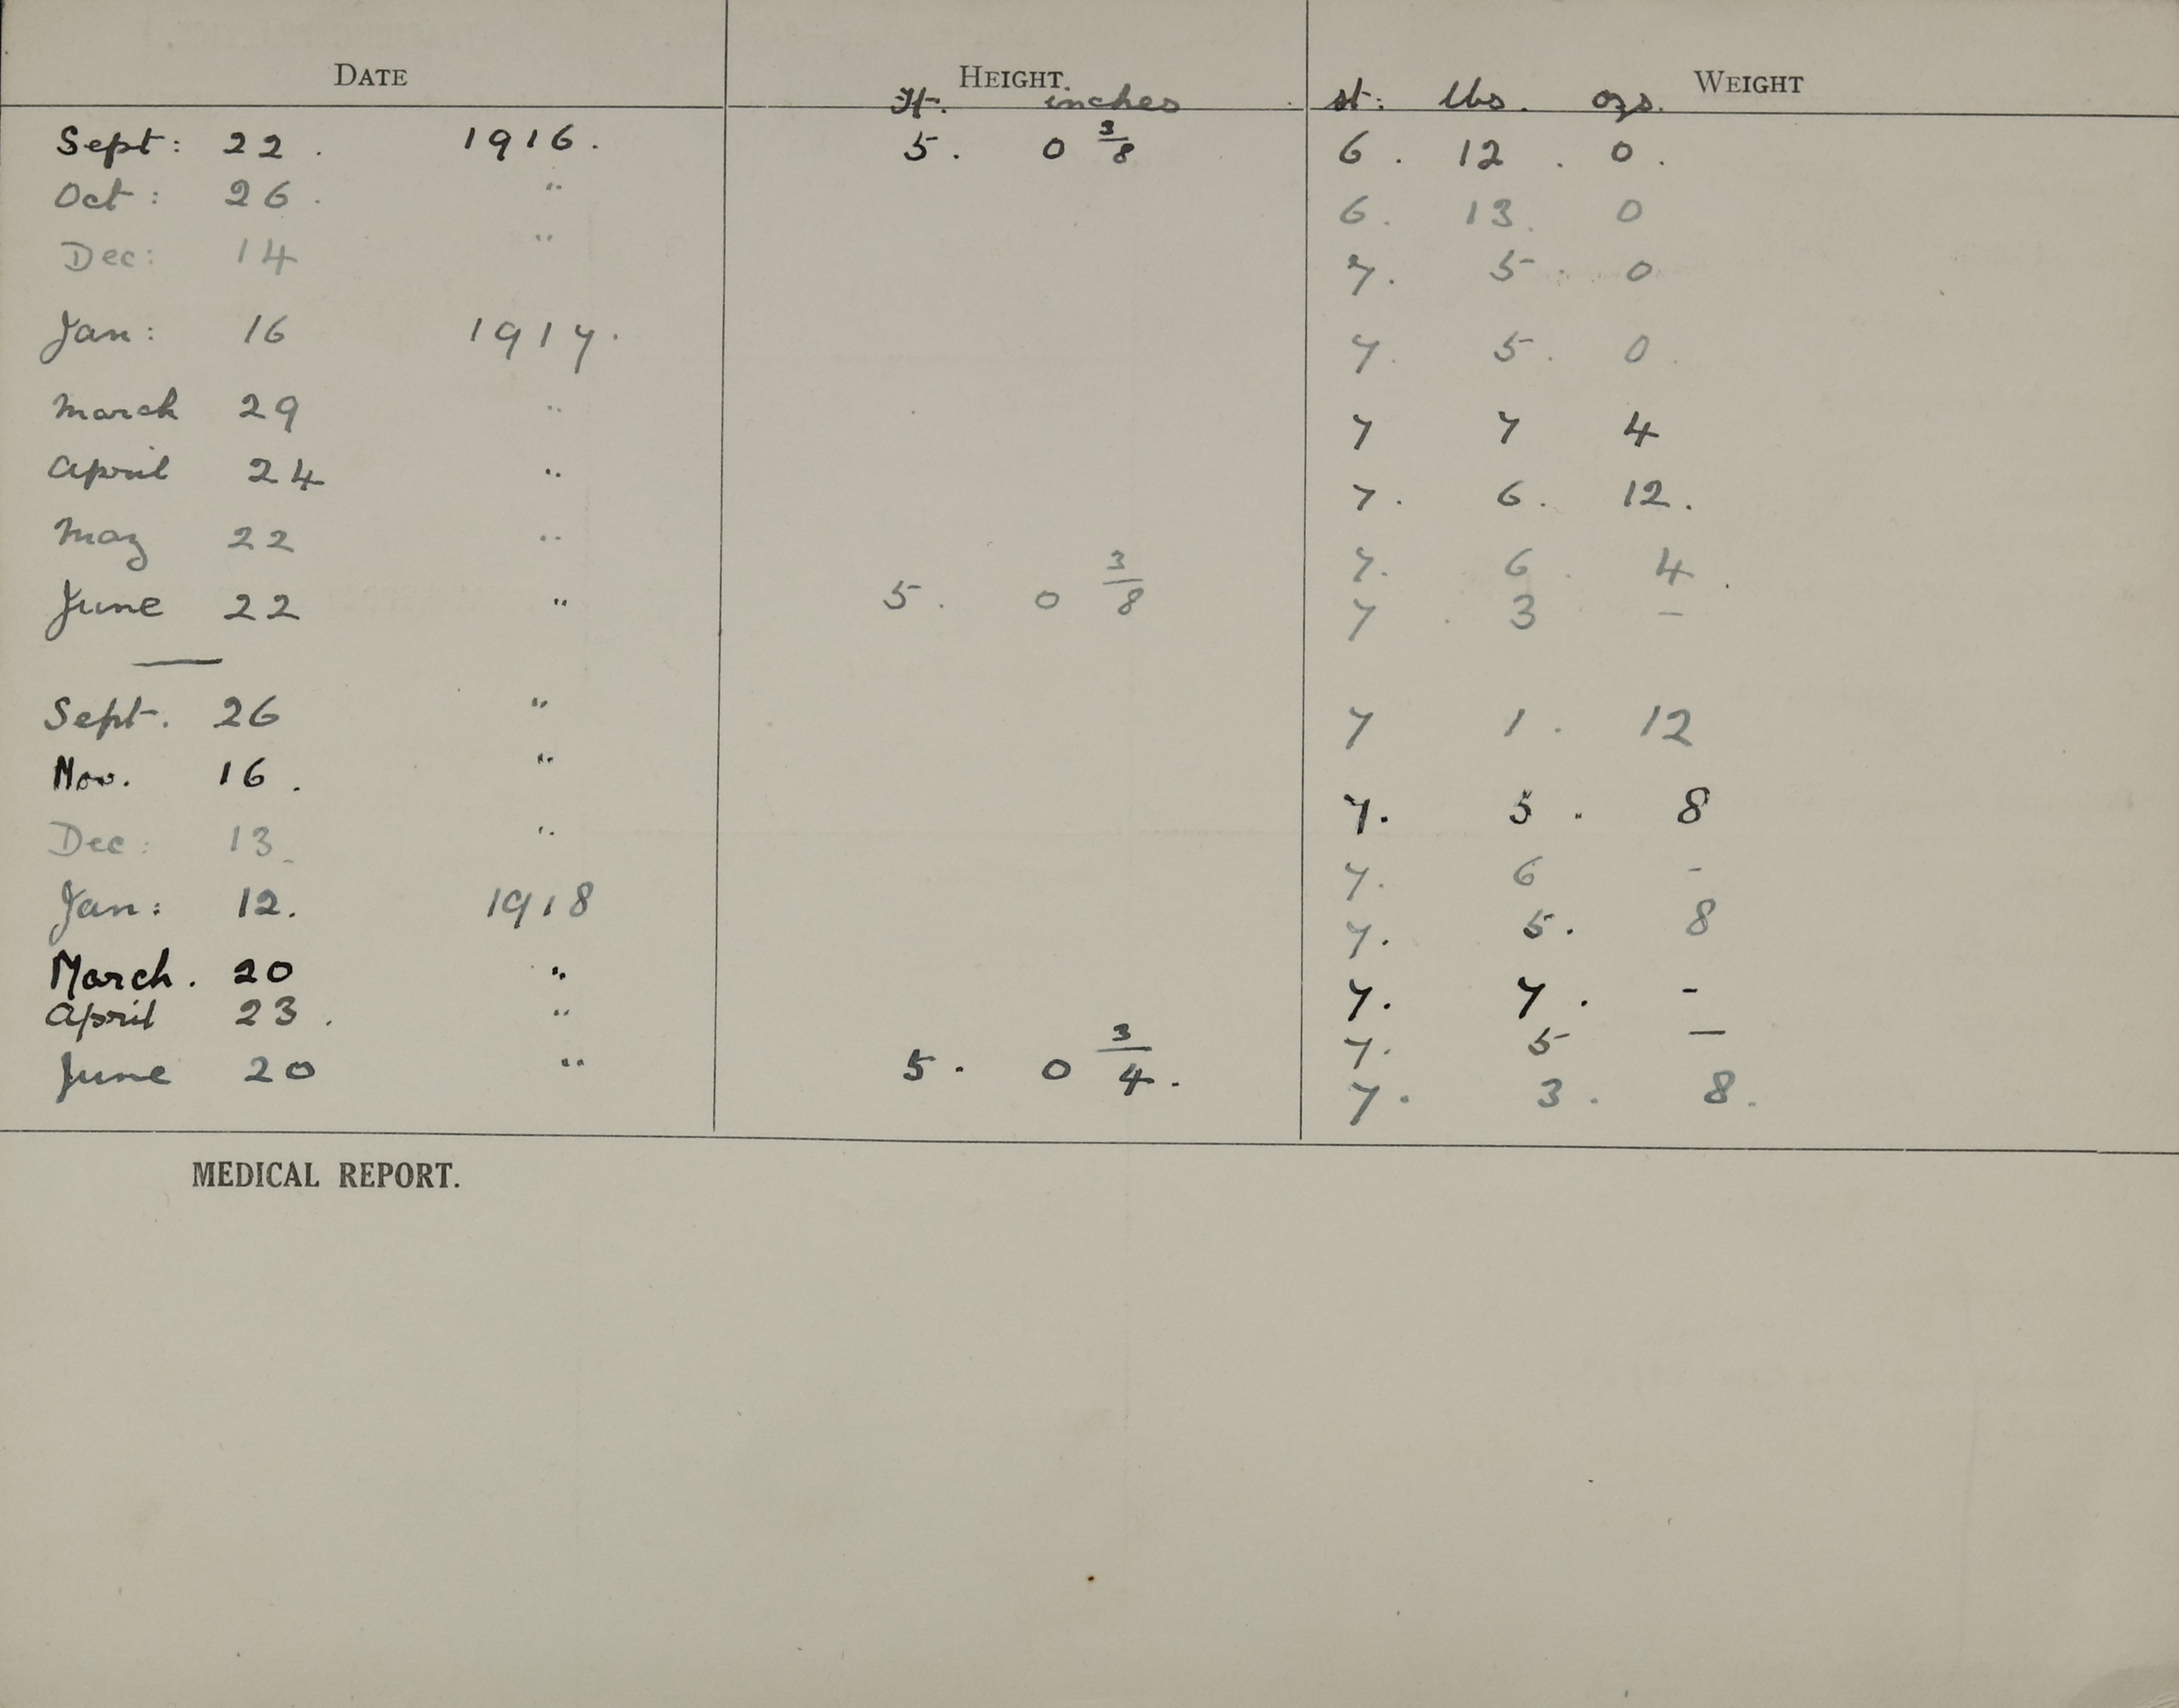 DATE HEIGHT. WEIGHT
ft. inches st: lbs. ozs.
Sept: 22. 1916. 5. 0 3/8 6. 12. 0.
Oct: 26. " 6. 13. 0
Dec: 14 " 7. 5. 0
Jan: 16 1917. 7. 5. 0.
March 29 " 7 7 4
April 24 " 7. 6. 12.
May 22 " 7. 6. 4.
June 22 " 5. 0 3/8 7. 3 -
—
Sept. 26 " 7 1. 12
Nov. 16. " 7. 5. 8
Dec: 13 " 7. 6 -
Jan: 12. 1918 7. 5. 8
March. 20 " 7. 7. -
April 23. " 7. 5 —
June 20 " 5. 0 3/4. 7. 3. 8.
MEDICAL REPORT.